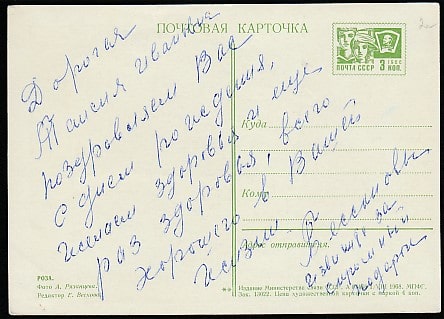 ПОЧТОВАЯ КАРТОЧКА
ПОЧТА СССР
1966
3 КОП.
Дорогая
Таисия Ивановна
поздравляем Вас
с днем рождения,
желаем здоровья и еще
раз здоровья, всего
хорошего в Вашей
жизни.
Бессоновы
Извините за
скромный
подарок
Куда
Кому
Адрес отправителя:
РОЗА.
Фото А. Рязанцева.
Редактор Е.
Издание Министерства связи СССР. 1968. МПФГ.
Зак. 13022. Цена художественной карточки с маркой 4 коп.